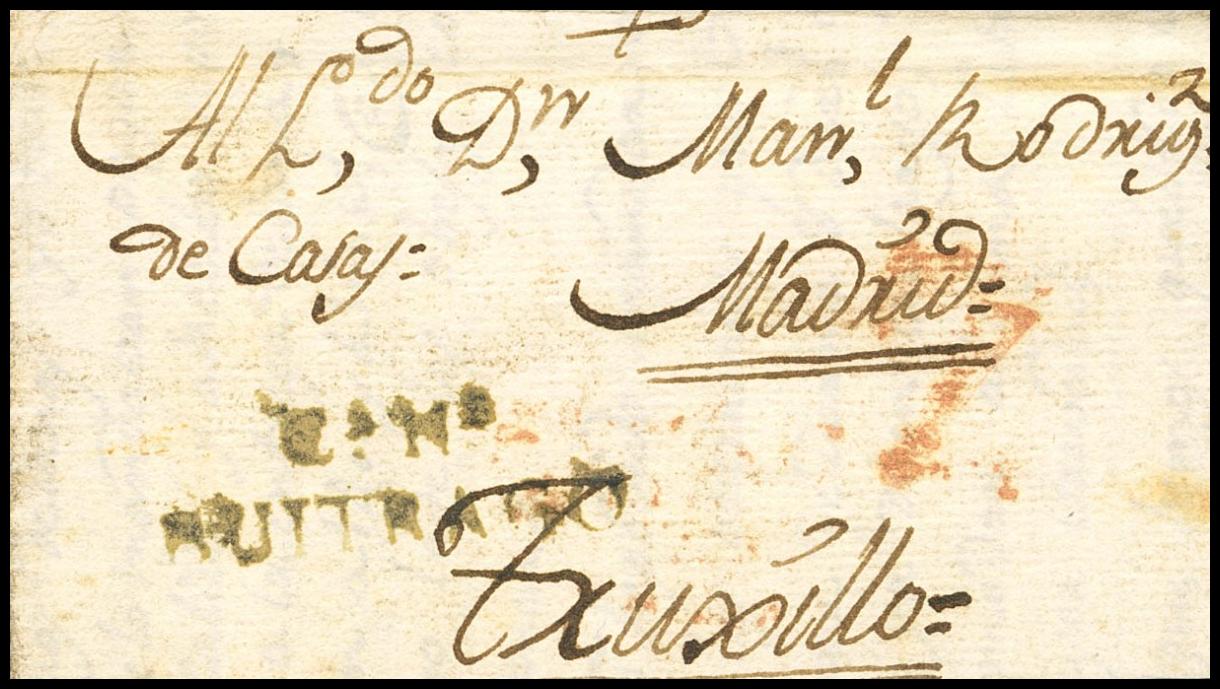 Al L,do Dn, Man,l Rodrigz
de Casas=
Madrid=
BUITRAGO
Truxillo=